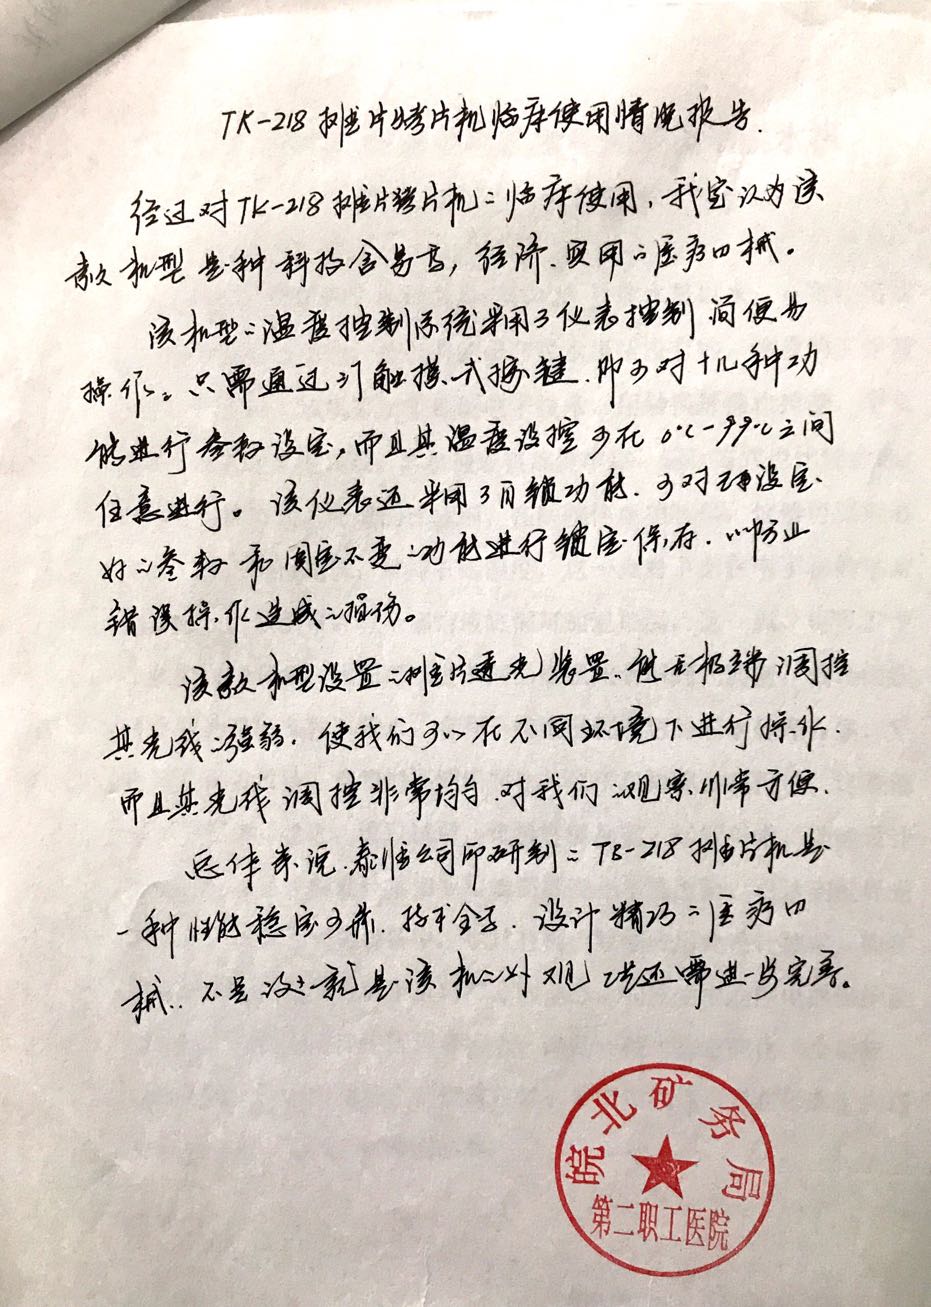 TK-218摊片烤片机临床使用情况报告.
经过对TK-218摊片烤片机的临床使用,我室认为该
款机型是种科技含量高,经济.实用的医疗四械。
该机型的温度控制系统采用了仪表控制 简便易
操作。只需通过几个触摸式按键.即可对十几种功
能进行参数设定,而且其温度设控可在0℃-99℃之间
任意进行。该仪表还采用了自锁功能.可对已设定
好的参数和固定不变的功能进行锁定保存.以防止
错误操作造成的损伤。
该款机型设置的摊片透光装置.能无极多调控
其光线的强弱.使我们可以在不同环境下进行操作.
而且其光线调控非常均匀.对我们的观察非常方便.
总体来说.泰维公司所研制的TB-218摊片机是
一种性能稳定可靠.技术全了.设计精巧的医疗四
械.不足之处就是该机的外观 还需进一步完善。
皖北矿务局
第二职工医院